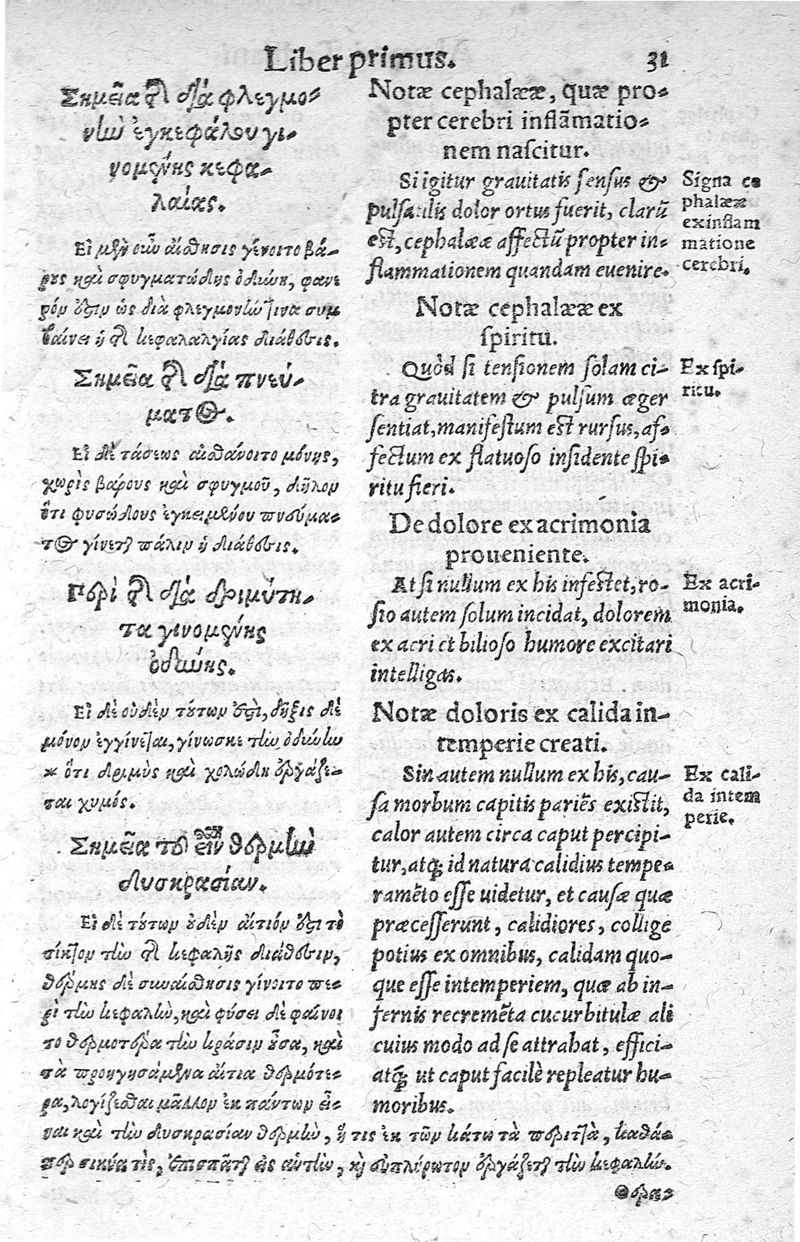 Liber primus. 31
Σημεῖα τῆς διὰ φλεγμο-
νὴν ἐγκεφάλου γι-
νομένης κεφα-
λαίας.
Εἰ μὲν οὖν αἴσθησις γένοιτο βά-
ρους καὶ σφυγματώδης ὀδύνη, φανε
ρόν ἐστιν ὡς διὰ φλεγμονήν τινα συμ
βαίνει ἡ τῆς κεφαλαλγίας διάθεσις.
Σημεῖα τῆς διὰ πνεύ-
ματος.
Εἰ δὲ τάσεως αἰσθάνοιτο μόνης,
χωρὶς βάρους καὶ σφυγμοῦ, δῆλον
ὅτι φυσώδους ἐγκειμένου πνεύμα-
τος γίνεται πάλιν ἡ διάθεσις.
Περὶ τῆς διὰ δριμύτη-
τα γινομένης
ὀδύνης.
Εἰ δὲ οὐδὲν τούτων ἐστὶ, δῆξις δὲ
μόνον ἐγγίνεται, γίνωσκε τὴν ὀδύνην
ὅτι δριμὺς καὶ χολώδης ἐργάζε-
ται χυμός.
Σημεῖα τοῦ εἶναι θερμὴν
δυσκρασίαν.
Εἰ δὲ τούτων οὐδὲν αἴτιόν ἐστι τὸ
τίκτον τὴν τῆς κεφαλῆς διάθεσιν,
θέρμης δὲ συναίσθησις γίνοιτο πε-
ρὶ τὴν κεφαλὴν, καὶ φύσει δὲ φαίνοι
το θερμοτέρα τὴν κρᾶσιν οὖσα, καὶ
τὰ προηγησάμενα αἴτια θερμότε-
ρα, λογίζεσθαι μᾶλλον ἐκ πάντων εἶ-
ναι καὶ τὴν δυσκρασίαν θερμὴν, ἥ τις ἐκ τῶν κάτω τὰ περιττὰ, καθά-
περ σικύα τὶς, ἐπισπᾶται εἰς αὑτὴν, καὶ εὐπλήρωτον ἐργάζεται τὴν κεφαλήν.
Notæ cephalææ, quæ pro-
pter cerebri inflãmatio-
nem nascitur.
Si igitur grauitatis sensus &
pulsatilis dolor ortus fuerit, clarũ
est, cephalææ affectũ propter in-
flammationem quandam euenire.
Notæ cephalææ ex
spiritu.
Quòd si tensionem solam ci-
tra grauitatem & pulsum æger
sentiat, manifestum est rursus, af-
fectum ex flatuoso insidente spi-
ritu fieri.
De dolore ex acrimonia
proueniente.
At si nullum ex his infestet, ro-
sio autem solum incidat, dolorem
ex acri et bilioso humore excitari
intelligas.
Notæ doloris ex calida in-
temperie creati.
Sin autem nullum ex his, cau-
sa morbum capitis pariẽs existit,
calor autem circa caput percipi-
tur, atq; id natura calidius tempe-
ramẽto esse uidetur, et causæ quæ
præcesserunt, calidiores, collige
potius ex omnibus, calidam quo-
que esse intemperiem, quæ ab in-
fernis recremẽta cucurbitulæ ali
cuius modo ad se attrahat, effici-
atq; ut caput facilè repleatur hu-
moribus.
Signa ce
phalææ
ex inflam
matione
cerebri.
Ex spi-
ritu.
Ex acri-
monia.
Ex cali-
da intem
perie.
Θερα-